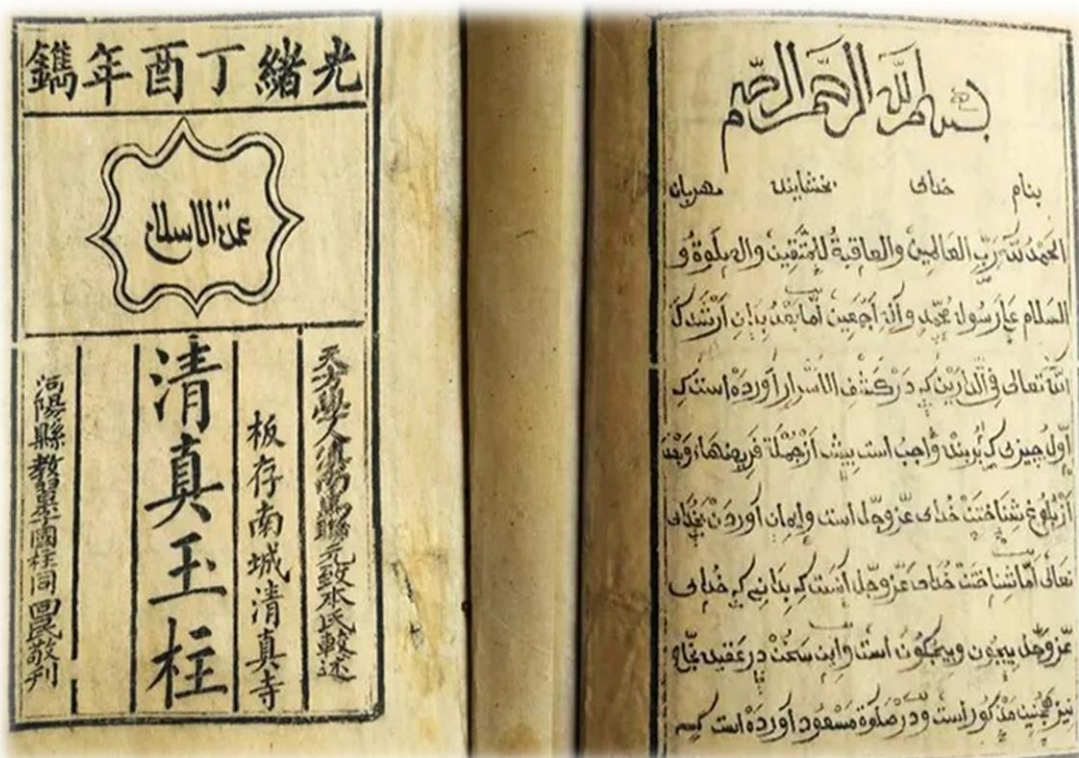 光緒丁酉年鐫
عمدة الاسلام
天方學人 馬聯元致本氏輯述
板存南城清真寺
清真玉柱
河陽縣教 國柱同 敬刊
بسم الله الرحمن الرحيم
بنام خدای بخشاینده مهربان
الحَمْدُ للهِ رَبِّ العَالَمِینَ والعَاقِبَةُ لِلْمُتَّقِینَ والصلوةُ وَ
السَلام عَلَی رَسُولِهِ مُحَمَّدٍ وَآلِهِ اَجْمَعِینَ اَمَّا بَعْدُ بِدَان اَرْشَدَكَ
اللهُ تَعَالَی فِی الدَارَیْنِ کِه دَرْ کَشْفِ الْاَسْرار آوَرده است کِه
اَوَّل چیزی کِه بَرْ بنده وَاجب است پیش اَزْ جُمْلَهٔ فَریضَهَا، وَبَعْد
اَزْ بُلُوغ شِنَاخْتَنْ خُدَای عَزَّ وَجَلَّ است وایمان آوردَنْ بَخُدای
تعالَی اَمّا شِنَاخْتَنْ خُدَای عَزَّ وَجَلَّ آنَست کِه بِدَانی کِه خُدَای
عَزَّ وَجَلَّ بیچُون وبیچکُونَ است وَاین سخُنْ در عَقِیدهٔ نَجَاح
نیز هَمچُنین مَذکُور است وَدَرْ صَلَوة مَسْعُود آوَرْدَه است کسی